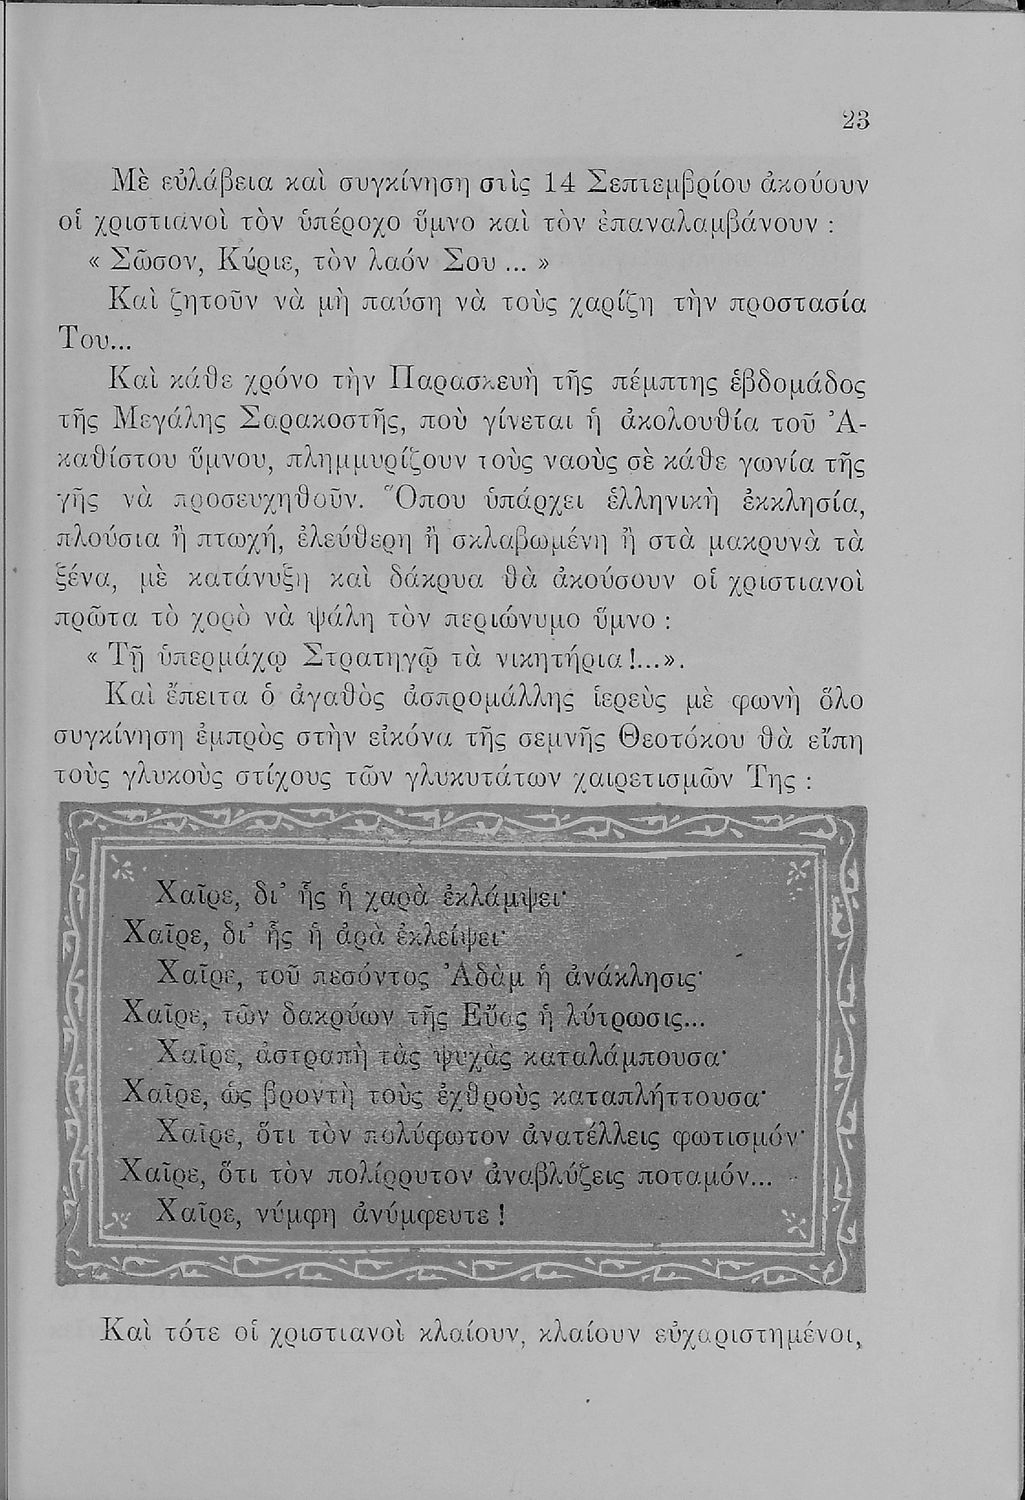 23
Μὲ εὐλάβεια καὶ συγκίνηση στὶς 14 Σεπτεμβρίου ἀκούουν
οἱ χριστιανοὶ τὸν ὑπέροχο ὕμνο καὶ τὸν ἐπαναλαμβάνουν :
« Σῶσον, Κύριε, τὸν λαόν Σου ... »
Καὶ ζητοῦν νὰ μὴ παύση νὰ τοὺς χαρίζη τὴν προστασία
Του...
Καὶ κάθε χρόνο τὴν Παρασκευὴ τῆς πέμπτης ἑβδομάδος
τῆς Μεγάλης Σαρακοστῆς, ποὺ γίνεται ἡ ἀκολουθία τοῦ Ἀ-
καθίστου ὕμνου, πλημμυρίζουν τοὺς ναοὺς σὲ κάθε γωνία τῆς
γῆς νὰ προσευχηθοῦν. Ὅπου ὑπάρχει ἑλληνικὴ ἐκκλησία,
πλούσια ἢ πτωχή, ἐλεύθερη ἢ σκλαβωμένη ἢ στὰ μακρυνὰ τὰ
ξένα, μὲ κατάνυξη καὶ δάκρυα θὰ ἀκούσουν οἱ χριστιανοὶ
πρῶτα τὸ χορὸ νὰ ψάλη τὸν περιώνυμο ὕμνο :
« Τῇ ὑπερμάχῳ Στρατηγῷ τὰ νικητήρια!...».
Καὶ ἔπειτα ὁ ἀγαθὸς ἀσπρομάλλης ἱερεὺς μὲ φωνὴ ὅλο
συγκίνηση ἐμπρὸς στὴν εἰκόνα τῆς σεμνῆς Θεοτόκου θὰ εἴπη
τοὺς γλυκοὺς στίχους τῶν γλυκυτάτων χαιρετισμῶν Της :
Χαῖρε, δι' ἧς ἡ χαρὰ ἐκλάμψει·
Χαῖρε, δι' ἧς ἡ ἀρὰ ἐκλείψει·
Χαῖρε, τοῦ πεσόντος Ἀδὰμ ἡ ἀνάκλησις·
Χαῖρε, τῶν δακρύων τῆς Εὔας ἡ λύτρωσις...
Χαῖρε, ἀστραπὴ τὰς ψυχὰς καταλάμπουσα·
Χαῖρε, ὡς βροντὴ τοὺς ἐχθροὺς καταπλήττουσα·
Χαῖρε, ὅτι τὸν πολύφωτον ἀνατέλλεις φωτισμόν·
Χαῖρε, ὅτι τὸν πολίρρυτον ἀναβλύζεις ποταμόν...
Χαῖρε, νύμφη ἀνύμφευτε !
Καὶ τότε οἱ χριστιανοὶ κλαίουν, κλαίουν εὐχαριστημένοι,